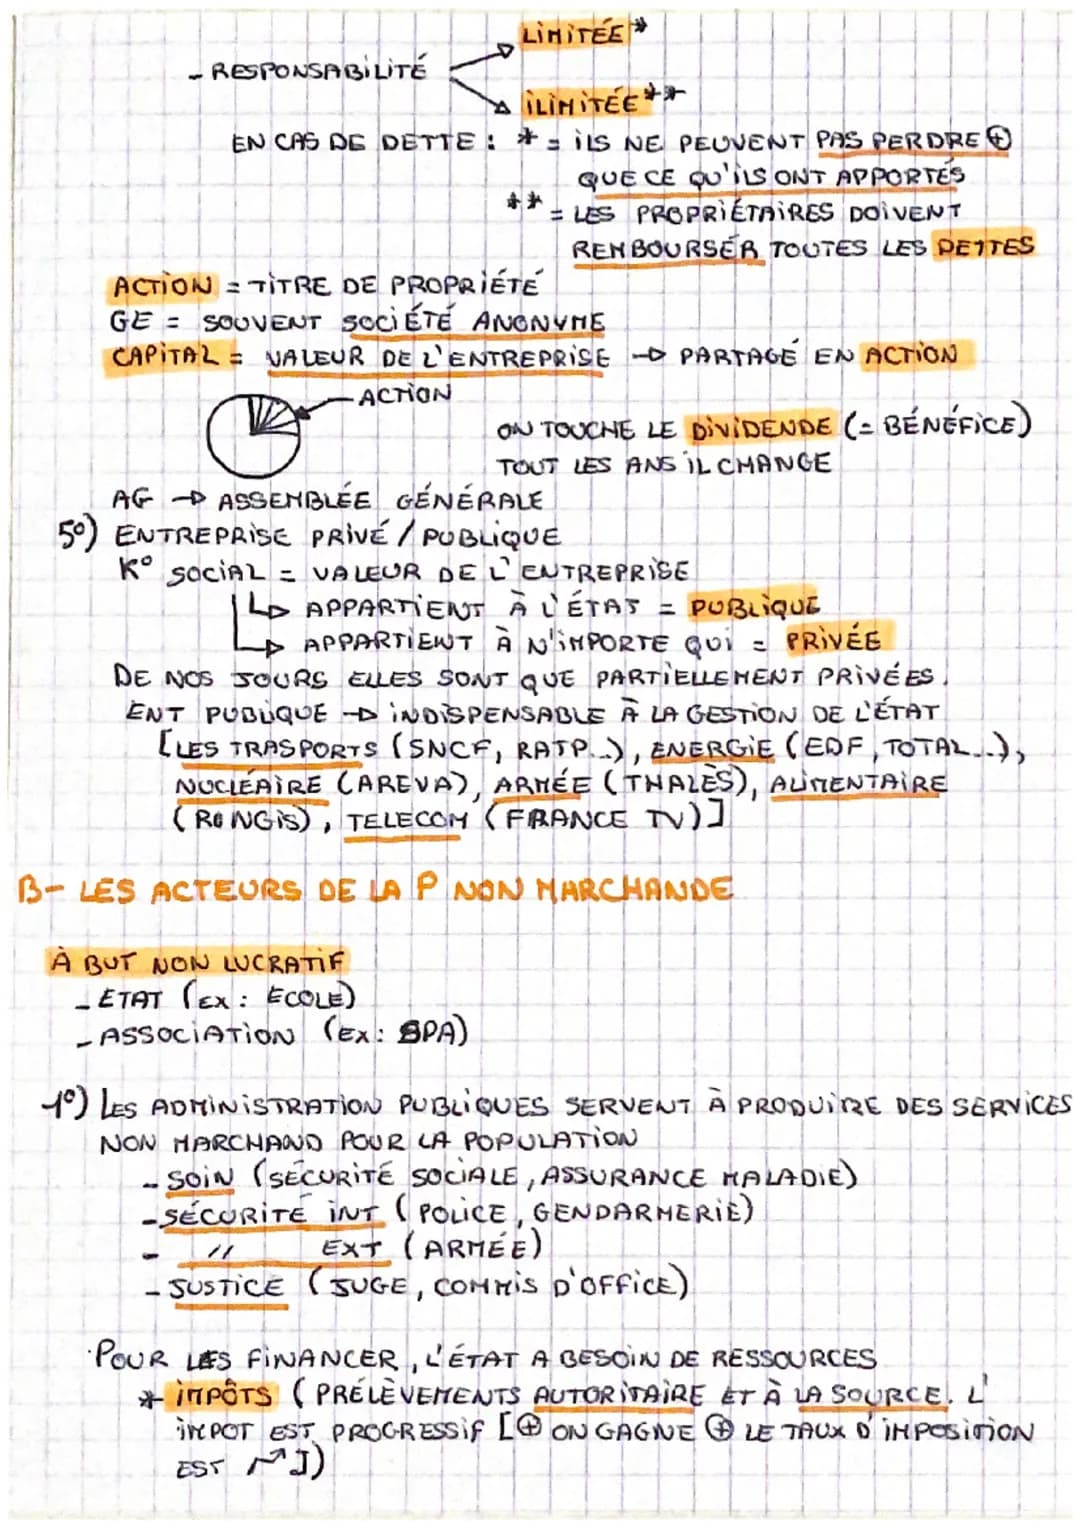 LIMITÉE *
- RESPONSABILITÉ
ILIMITÉE **
EN CAS DE DETTE : * = ILS NE PEUVENT PAS PERDRE ⊕
QUE CE QU'ILS ONT APPORTÉS
** = LES PROPRIÉTAIRES DOIVENT
REMBOURSÉR TOUTES LES DETTES
ACTION = TITRE DE PROPRIÉTÉ
GE = SOUVENT SOCIÉTÉ ANONYME
CAPITAL = VALEUR DE L'ENTREPRISE → PARTAGÉ EN ACTION
ACTION
ON TOUCHE LE DIVIDENDE (= BÉNÉFICE)
TOUT LES ANS IL CHANGE
AG → ASSEMBLÉE GÉNÉRALE
5°) ENTREPRISE PRIVÉ / PUBLIQUE
K° SOCIAL = VALEUR DE L'ENTREPRISE
↳ APPARTIENT À L'ÉTAT = PUBLIQUE
↳ APPARTIENT À N'IMPORTE QUI = PRIVÉE
DE NOS JOURS ELLES SONT QUE PARTIELLEMENT PRIVÉES.
ENT PUBLIQUE → INDISPENSABLE À LA GESTION DE L'ÉTAT
[LES TRASPORTS (SNCF, RATP...), ENERGIE (EDF, TOTAL...),
NUCLÉAIRE (AREVA), ARMÉE (THALÈS), ALIMENTAIRE
(RUNGIS), TELECOM (FRANCE TV)]
B- LES ACTEURS DE LA P NON MARCHANDE
À BUT NON LUCRATIF
- ETAT (EX : ECOLE)
- ASSOCIATION (EX : SPA)
1°) LES ADMINISTRATION PUBLIQUES SERVENT À PRODUIRE DES SERVICES
NON MARCHAND POUR LA POPULATION
- SOIN (SÉCURITÉ SOCIALE, ASSURANCE MALADIE)
- SÉCURITÉ INT (POLICE, GENDARMERIE)
- // EXT (ARMÉE)
- JUSTICE (JUGE, COMMIS D'OFFICE)
POUR LES FINANCER, L'ÉTAT A BESOIN DE RESSOURCES
* IMPÔTS (PRÉLÈVEMENTS AUTORITAIRE ET À LA SOURCE. L'
IMPOT EST PROGRESSIF [⊕ ON GAGNE ⊕ LE TAUX D'IMPOSITION
EST ↗])